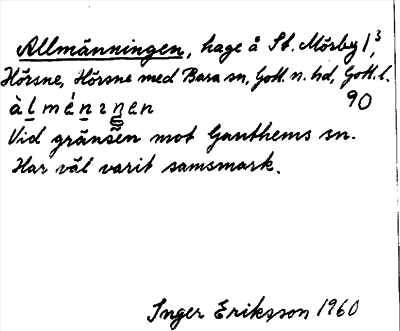 Allmänningen, hage å St. Mörby 1³,
Hörsne, Hörsne med Bara sn, Gotl. n. hd, Gotl. l.
90
àl mánıŋen
Vid gränsen mot Ganthems sn.
Har väl varit samsmark.
Inger Eriksson 1960